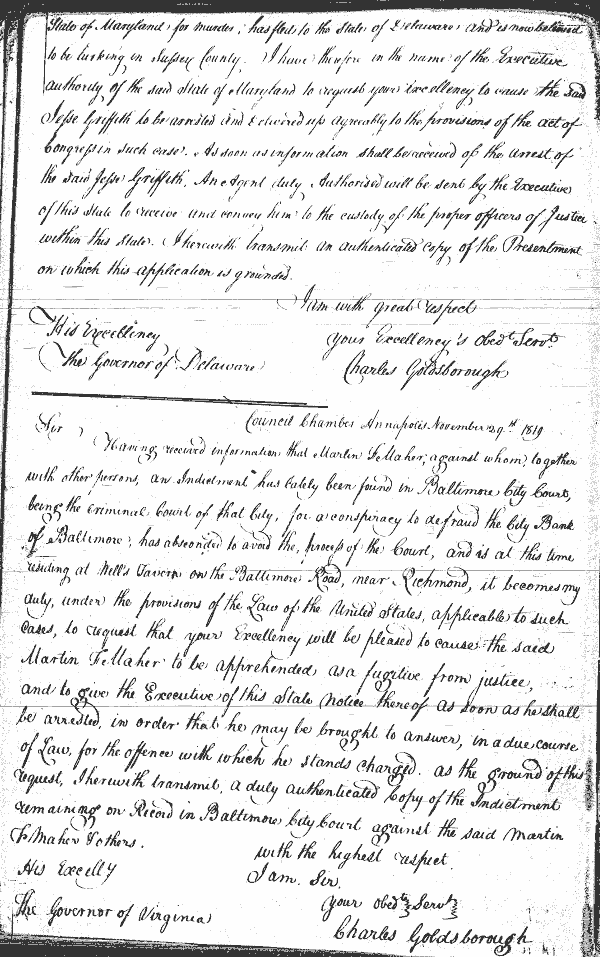 State of Maryland for murder, has fled to the State of Delaware and is now believed
to be lurking in Sussex County. I have therefore in the name of the Executive
authority of the said State of Maryland to request your Excellency to cause the said
Jesse Griffith to be arrested and delivered up agreeably to the provisions of the act of
Congress in such case. As soon as information shall be received of the arrest of
the said Jesse Griffith, An Agent duly Authorised will be sent by the Executive
of this State to receive and convey him to the custody of the proper officers of Justice
within this State. I herewith transmit an authenticated copy of the Presentment
on which this application is grounded.
I am with great respect
His Excellency your Excellency's obedt Servt
The Governor of Delaware Charles Goldsborough
Council Chamber Annapolis November 29th 1819
Sir
Having received information that Martin F Maher, against whom, together
with other persons, an Indictment has lately been found in Baltimore City Court,
being the criminal Court of that City, for a conspiracy to defraud the City Bank
of Baltimore, has absconded to avoid the process of the Court, and is at this time
residing at Mill's Tavern on the Baltimore Road, near Richmond, it becomes my
duty, under the provisions of the Law of the United States, applicable to such
cases, to request that your Excellency will be pleased to cause the said
Martin F Maher to be apprehended as a fugitive from justice,
and to give the Executive of this State notice thereof as soon as he shall
be arrested, in order that he may be brought to answer, in a due course
of Law, for the offence with which he stands charged. as the ground of this
request, I herewith transmit, a duly authenticated Copy of the Indictment
remaining on Record in Baltimore City Court against the said Martin
F Maher & others. with the highest respect
His Excelly I am Sir.
The Governor of Virginia your obedt Servt
Charles Goldsborough